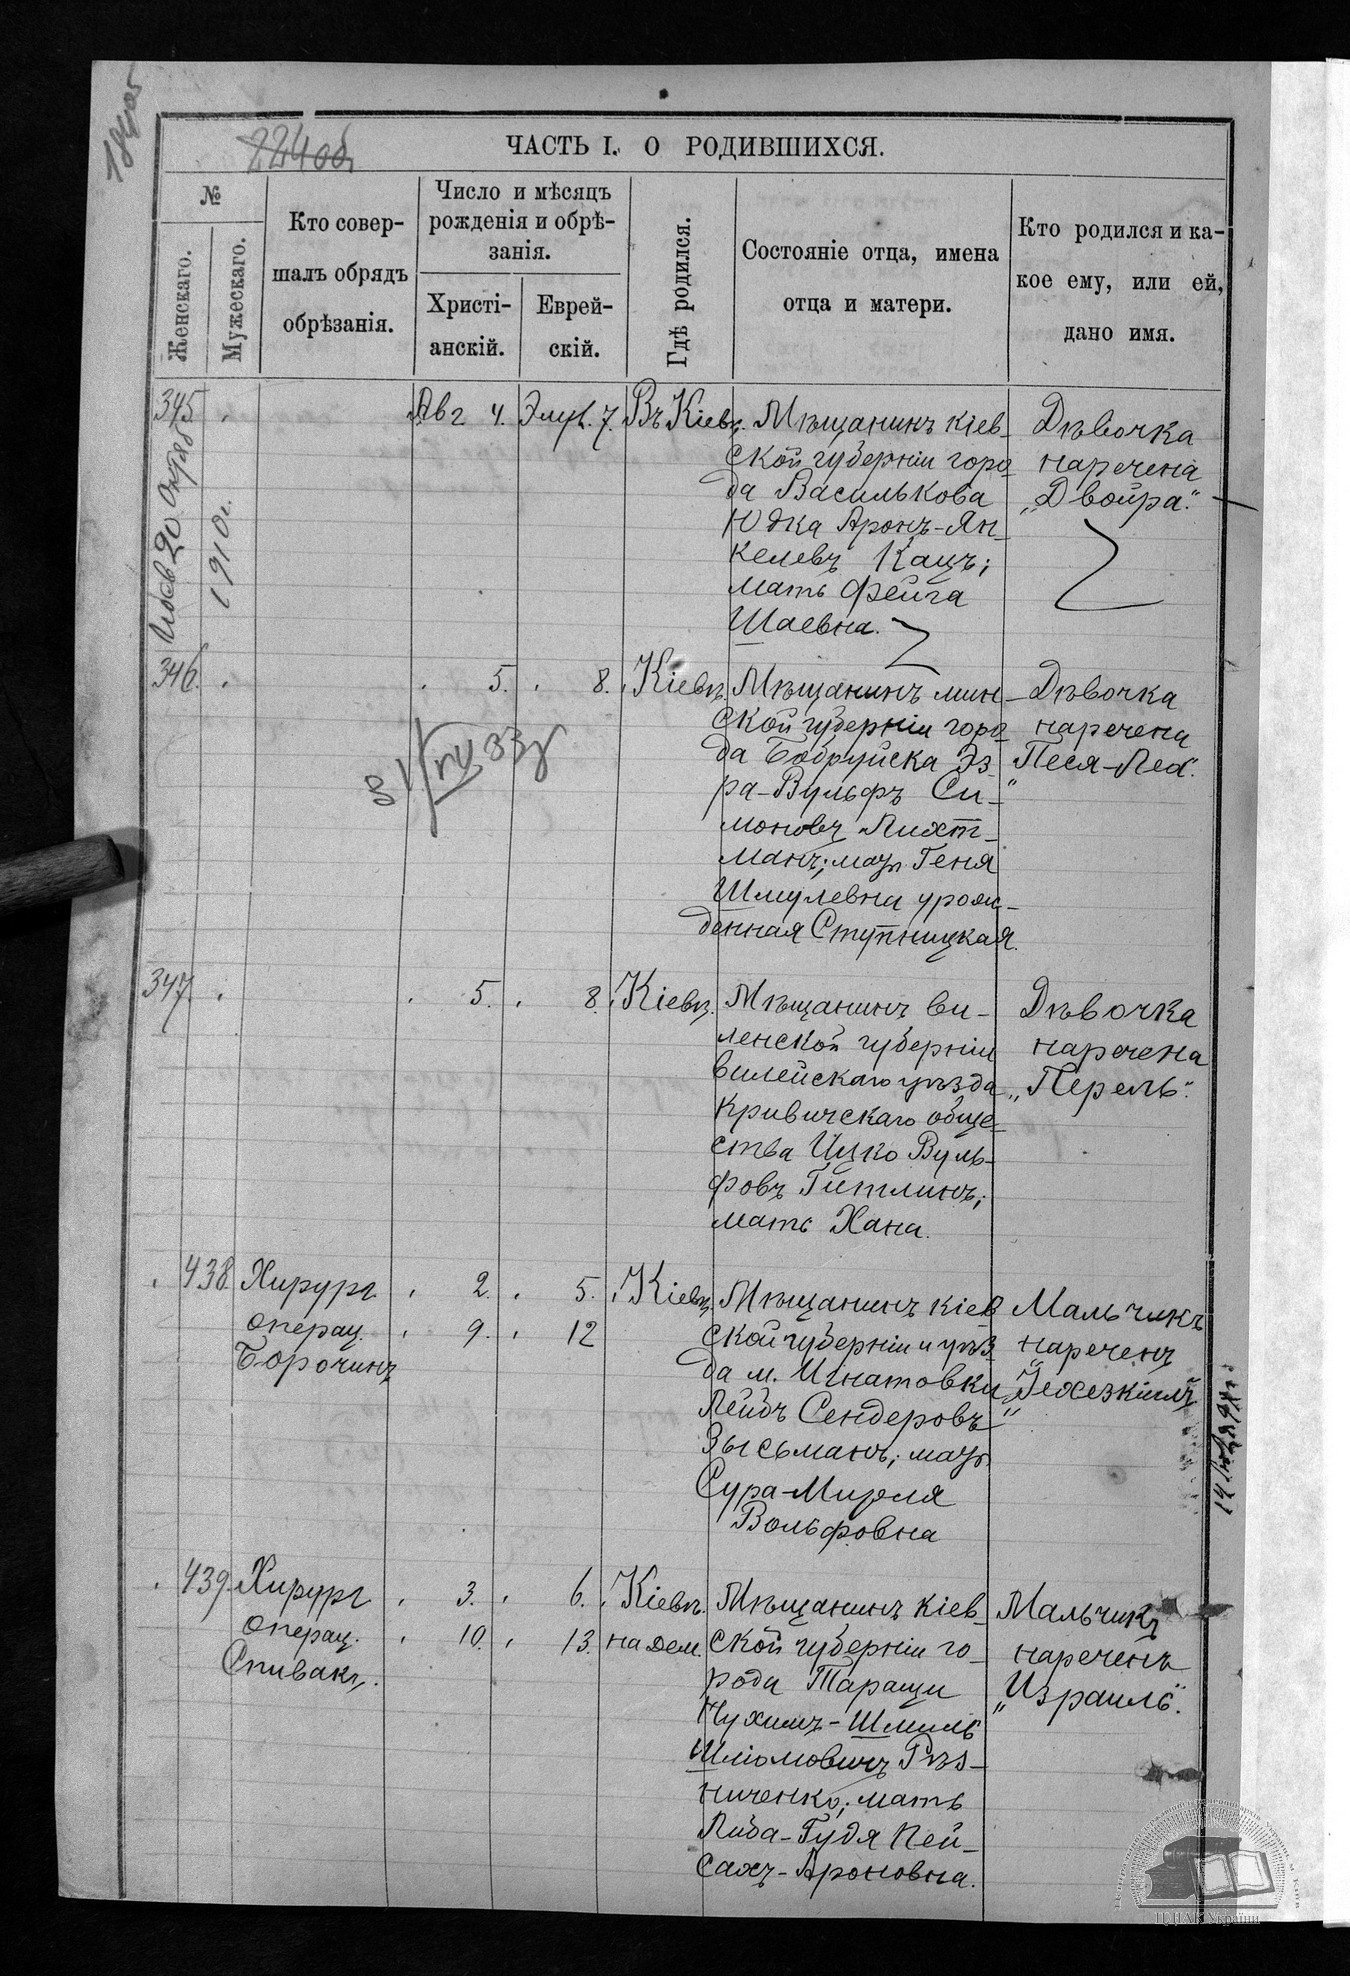 224об
ЧАСТЬ I. О РОДИВШИХСЯ.
№
Женскаго.
Мужескаго.
Кто совер-
шалъ обрядъ
обрѣзанія.
Число и мѣсяцъ
рожденія и обрѣ-
занія.
Христі-
анскій.
Еврей-
скій.
Гдѣ родился.
Состояніе отца, имена
отца и матери.
Кто родился и ка-
кое ему, или ей,
дано имя.
345
Авг 4.
Элул. 7.
Въ Кіевѣ.
Мѣщанинъ кіев-
ской губерніи горо-
да Василькова
Юдка Аронъ-Ян-
келевъ Кацъ;
мать Фейга
Шаевна.
Дѣвочка
наречена
„Двойра“.
20
1910г.
346.
5.
8.
Кіевѣ.
Мѣщанинъ мин-
ской губерніи горо-
да Бобруйска Эз-
ра-Вульфъ Си-
моновъ Лихт-
манъ; мать Геня
Шмулевна урож-
денная Ступницкая.
Дѣвочка
наречена
„Песя-Лея“.
347.
5.
8.
Кіевѣ.
Мѣщанинъ ви-
ленской губерніи
вилейскаго уѣзда
кривичскаго обще-
ства Ицко Вуль-
фовъ Гитлинъ;
мать Хана.
Дѣвочка
наречена
„Перель“.
438
Хирург.
операц.
Борочинъ
2.
9.
5.
12
Кіевѣ.
Мѣщанинъ кіев
ской губерніи и уѣз-
да м. Игнатовки
Лейбъ Сендеровъ
Зысьманъ; мать
Сура-Мирля
Вольфовна
Мальчикъ
нареченъ
„Іехезкіилъ“
439.
Хирург
операц.
Спивакъ.
3.
10.
6.
13.
Кіевѣ.
на Дем.
Мѣщанинъ кіев-
ской губерніи го-
рода Таращи
Нухимъ-Шмиль
Шліомовичъ Рѣз-
ниченко; мать
Либа-Гудя Пей-
сахъ-Ароновна.
Мальчикъ
нареченъ
„Израиль“.
ЦДІАК України